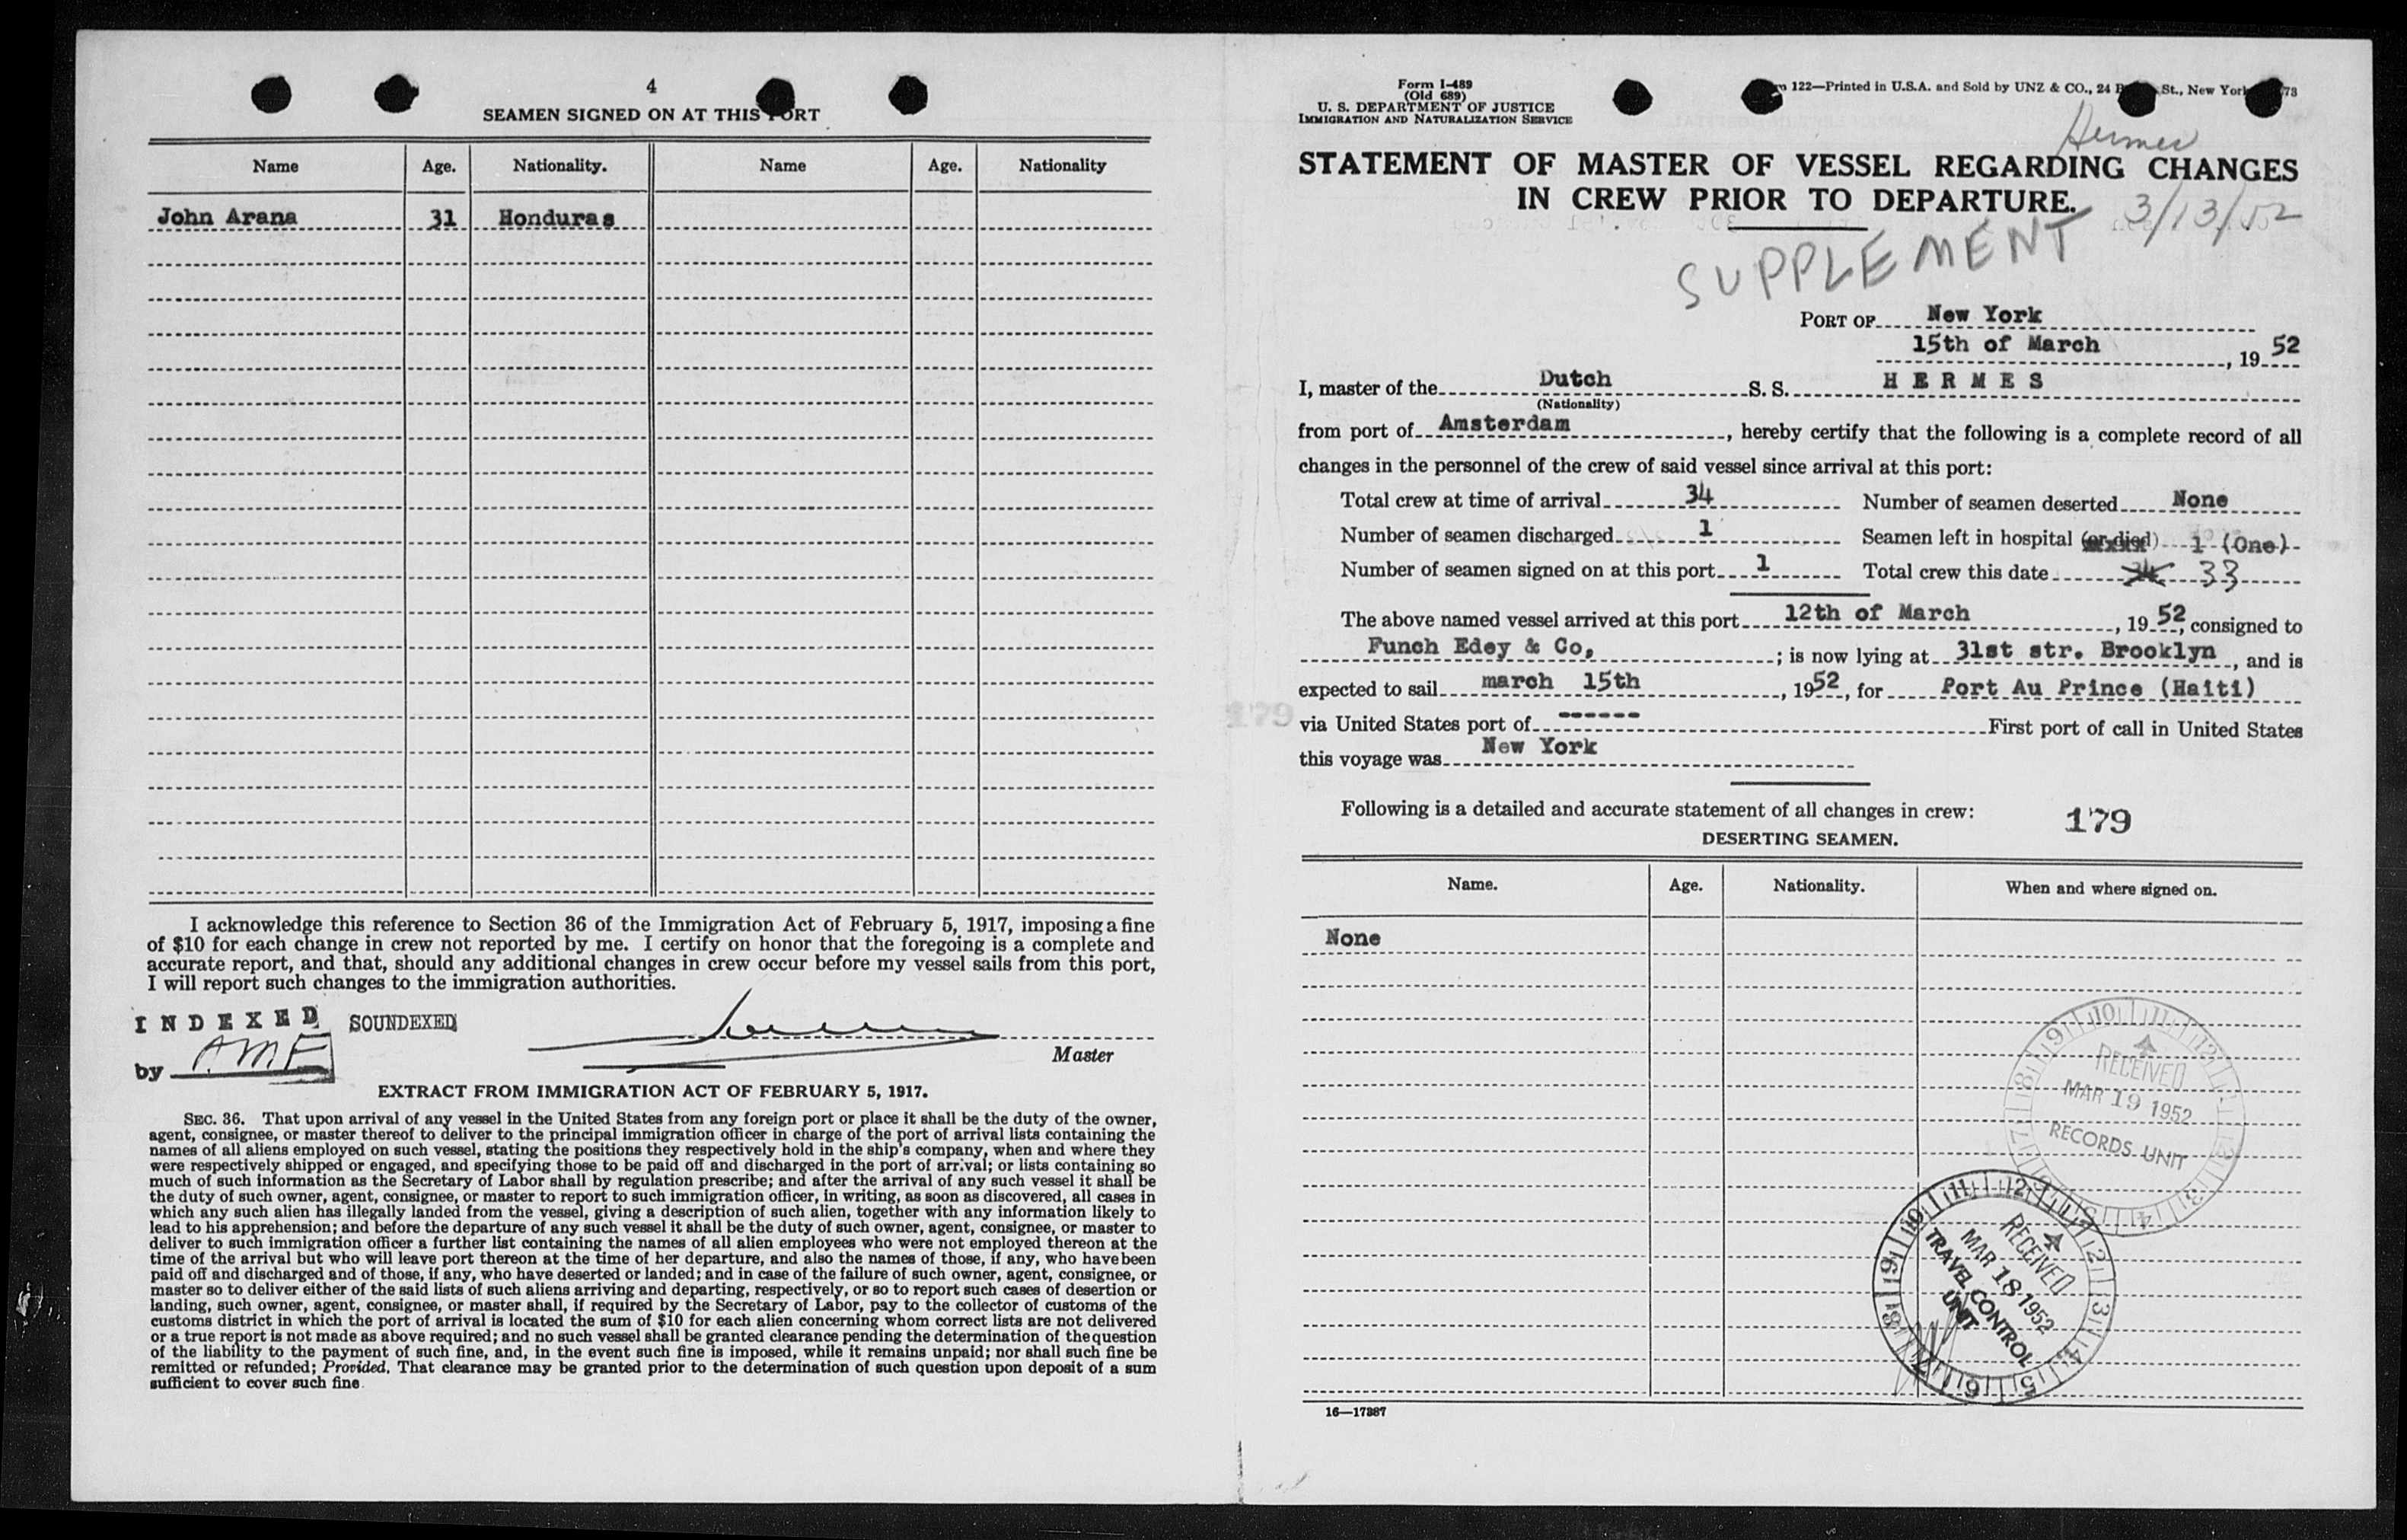 4
SEAMEN SIGNED ON AT THIS PORT
Name Age. Nationality. Name Age. Nationality
John Arana 31 Honduras
I acknowledge this reference to Section 36 of the Immigration Act of February 5, 1917, imposing a fine
of $10 for each change in crew not reported by me. I certify on honor that the foregoing is a complete and
accurate report, and that, should any additional changes in crew occur before my vessel sails from this port,
I will report such changes to the immigration authorities.
INDEXED SOUNDEXED
by AMF
Master
EXTRACT FROM IMMIGRATION ACT OF FEBRUARY 5, 1917.
SEC. 36. That upon arrival of any vessel in the United States from any foreign port or place it shall be the duty of the owner,
agent, consignee, or master thereof to deliver to the principal immigration officer in charge of the port of arrival lists containing the
names of all aliens employed on such vessel, stating the positions they respectively hold in the ship's company, when and where they
were respectively shipped or engaged, and specifying those to be paid off and discharged in the port of arrival; or lists containing so
much of such information as the Secretary of Labor shall by regulation prescribe; and after the arrival of any such vessel it shall be
the duty of such owner, agent, consignee, or master to report to such immigration officer, in writing, as soon as discovered, all cases in
which any such alien has illegally landed from the vessel, giving a description of such alien, together with any information likely to
lead to his apprehension; and before the departure of any such vessel it shall be the duty of such owner, agent, consignee, or master to
deliver to such immigration officer a further list containing the names of all alien employees who were not employed thereon at the
time of the arrival but who will leave port thereon at the time of her departure, and also the names of those, if any, who have been
paid off and discharged and of those, if any, who have deserted or landed; and in case of the failure of such owner, agent, consignee, or
master so to deliver either of the said lists of such aliens arriving and departing, respectively, or so to report such cases of desertion or
landing, such owner, agent, consignee, or master shall, if required by the Secretary of Labor, pay to the collector of customs of the
customs district in which the port of arrival is located the sum of $10 for each alien concerning whom correct lists are not delivered
or a true report is not made as above required; and no such vessel shall be granted clearance pending the determination of the question
of the liability to the payment of such fine, and, in the event such fine is imposed, while it remains unpaid; nor shall such fine be
remitted or refunded; Provided, That clearance may be granted prior to the determination of such question upon deposit of a sum
sufficient to cover such fine.
Form I-489
(Old 689)
U. S. DEPARTMENT OF JUSTICE
IMMIGRATION AND NATURALIZATION SERVICE
122—Printed in U.S.A. and Sold by UNZ & CO., 24 St., New York
Hermes
STATEMENT OF MASTER OF VESSEL REGARDING CHANGES
IN CREW PRIOR TO DEPARTURE.
3/13/52
SUPPLEMENT
PORT OF New York
15th of March, 19 52
I, master of the Dutch S. S. HERMES
(Nationality)
from port of Amsterdam, hereby certify that the following is a complete record of all
changes in the personnel of the crew of said vessel since arrival at this port:
Total crew at time of arrival 34 Number of seamen deserted None
Number of seamen discharged 1 Seamen left in hospital (or died) 1 (One)
Number of seamen signed on at this port 1 Total crew this date 33
The above named vessel arrived at this port 12th of March, 19 52, consigned to
Funch Edey & Co, ; is now lying at 31st str. Brooklyn, and is
expected to sail march 15th, 1952, for Port Au Prince (Haiti)
via United States port of ------ First port of call in United States
this voyage was New York
Following is a detailed and accurate statement of all changes in crew:
179
DESERTING SEAMEN.
Name. Age. Nationality. When and where signed on.
None
RECEIVED
MAR 19 1952
RECORDS UNIT
RECEIVED
MAR 18 1952
TRAVEL CONTROL
UNIT
16—17387